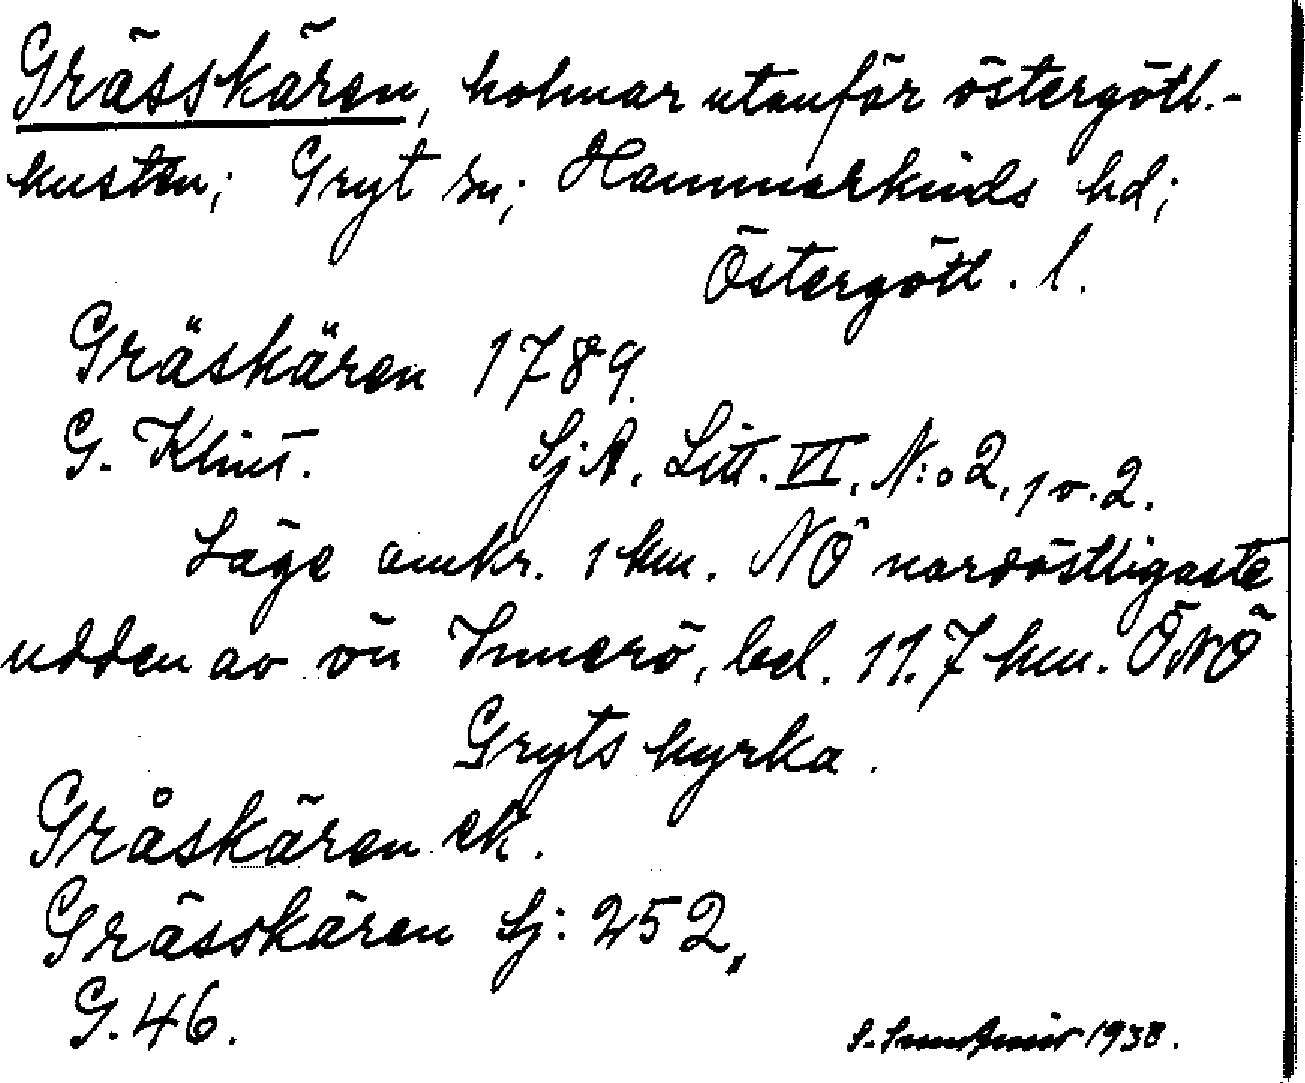 Grässkären, holmar utanför östergötl.-
kusten; Gryt sn; Hammarkinds hd;
Östergötl. l.
Gräskären 1789.
G. Klint. SjA. Litt. VI. N:o 2, 1 o. 2.
Läge omkr. 1 km. NÖ nordöstligaste
udden av ön Innerö, bel. 11.7 km. ÖNÖ
Gryts kyrka.
Gråskären ek.
Grässkären Sj: 252,
G. 46.
S. 1938.